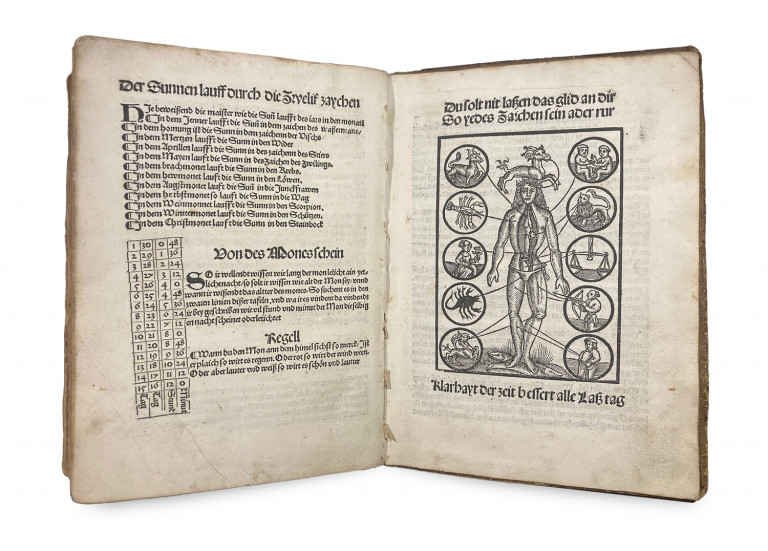 Der Sunnen lauff durch die Zwelif zaychen
Hie beweißend die maister wie die Suñ laufft des iars in den monatẽ
In dem Jenner laufft die Suñ in dem zaichen des waßermans
In dem hornung ist die Sunn in dem zaichenn der Vischs
In dem Mertzen laufft die Sunn in den Wider
In dem Apellen laufft die Sunn in des zaichen des Stiers
In dem Mayen laufft die Sunn in des Zaichen des Zwilings
In dem brachmonet laufft die Sunn in den Krebs
In dem hewmonet laufft die Sunn in den Löwen
In dem Augstmonet lauft die Suñ in die Junckfrawen
In dem herbstmonet so lauft die Sunn in die Wag
In dem Weinmonnet lauft die Sunn in den Scorpion
In dem Wintermonet lauft die Sunn in den Schützen
In dem Christmonet lauft die Sunn in den Stainbock
Von des Mones schein
So ir wellend wissen wie lang der mon leicht ain yet-
liche nacht / so solt ir wissen wie alt der Mon sey / vnnd
wann ir wissend das alter des mones. So suchent es in den
zwaien linien disser tafeln / vnd wa ir es vindent da vindendt
ir bey geschriben wie vil stund vnd minut der Mon dieselbig
en nacht scheinet oder leichtet
Regell
Wann du den Mon ann dem himel sichst so merck / Ist
er plaich so wirt es regenn. Oder rot so wirt der wind ween
Oder aber lauter vnd weiß so wirt es schön vnd lautter
1 30 0 48
2 29 1 36
3 28 2 24
4 27 3 12
5 26 4 0
6 25 4 48
7 24 5 36
8 23 6 24
9 22 7 12
10 21 8 0
11 20 8 48
12 19 9 36
13 18 10 24
14 17 11 12
15 16 12 0
Tag Tag Stund Minut
Du solt nit laßen das glid an dir
So yedes Zaichen sein ader rur
Klarhayt der zeit bessert alle Laß tag